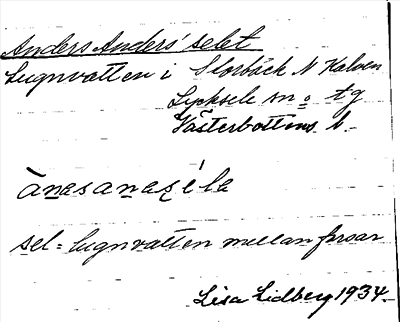 Anders Anders' selet
Lugnvatten i Storbäck N Kalven
Lycksele sn o tg
Västerbottens l.
ànasanazéle
sel = lugnvatten mellan forsar
Lisa Lidberg 1934